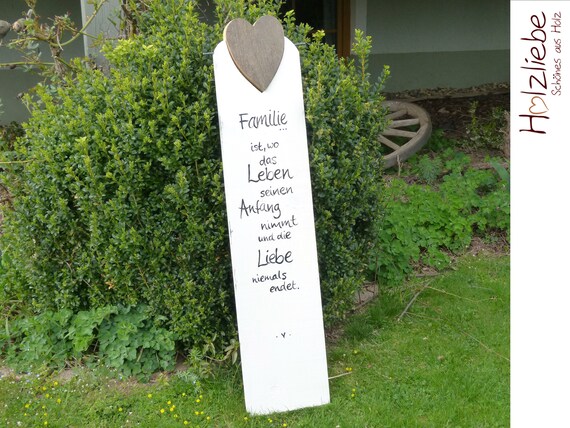 Familie
...
ist, wo
das
Leben
seinen
Anfang
nimmt
und die
Liebe
niemals
endet.
. v .
Holzliebe
Schönes aus Holz